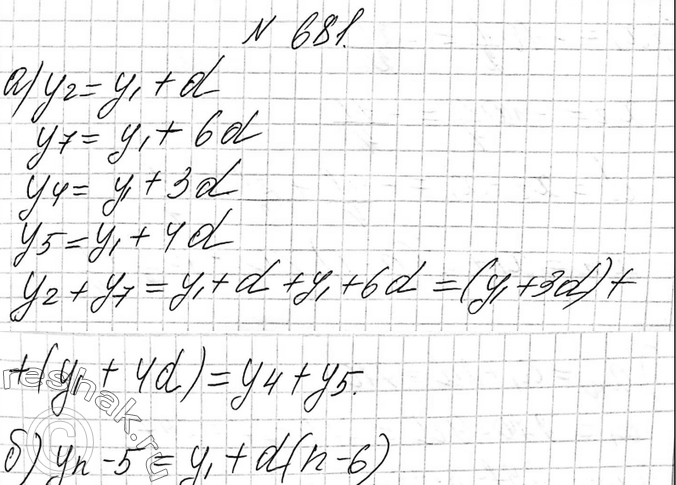 N 681.
а) y₂ = y₁ + d
y₇ = y₁ + 6d
y₄ = y₁ + 3d
y₅ = y₁ + 4d
y₂ + y₇ = y₁ + d + y₁ + 6d = (y₁ + 3d) +
+ (y₁ + 4d) = y₄ + y₅.
б) yₙ - 5 = y₁ + d(n - 6)
©reshak.ru